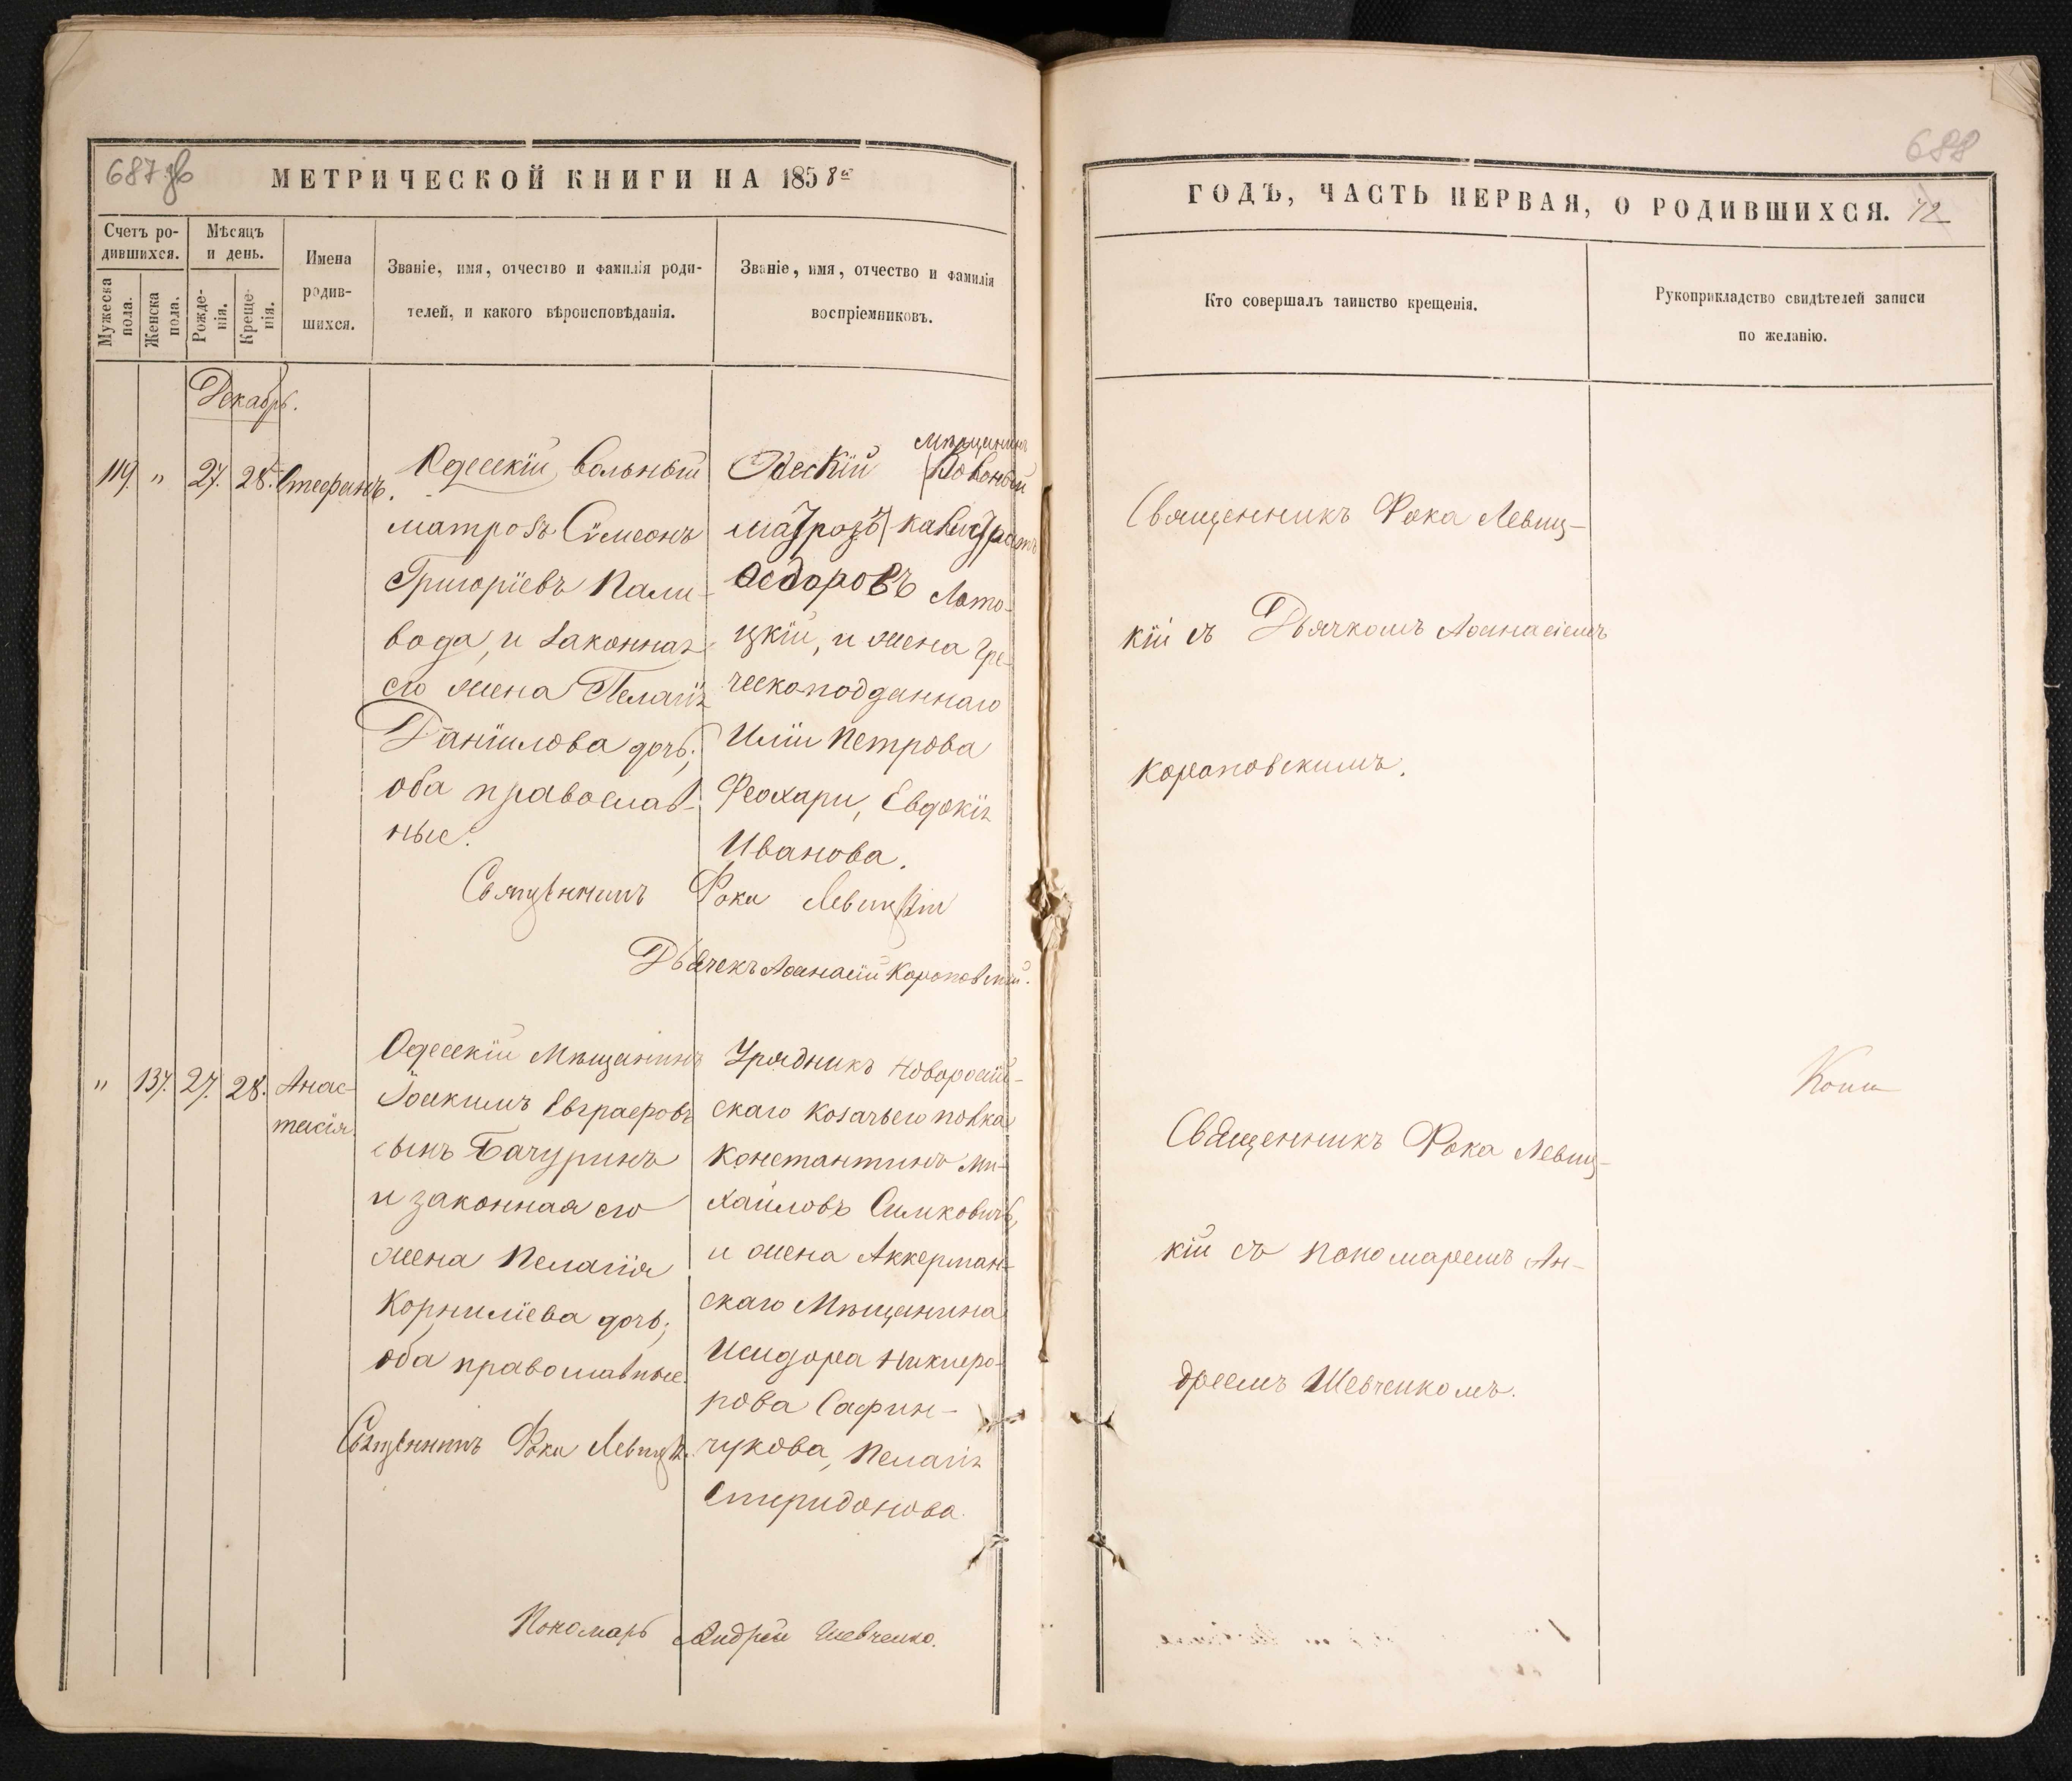 687 зв
МЕТРИЧЕСКОЙ КНИГИ НА 1858й
Счетъ ро-
дившихся.
Мужеска
пола.
Женска
пола.
Мѣсяцъ
и день.
Рожде-
нія.
Креще-
нія.
Имена
родив-
шихся.
Званіе, имя, отчество и фамилія роди-
телей, и какого вѣроисповѣданія.
Званіе, имя, отчество и фамилія
воспріемниковъ.
Декабрь.
119. " 27. 28. Стефанъ.
Одесскій вольный
матрозъ Сѵмеонъ
Григоріевъ Пали-
вода, и законная
его жена Пелагія
Даніилова дочь;
оба православ-
ные.
Одескій мѣщанинъ
матрозъ
Ѳедоровъ Лото-
цкій, и жена Гре-
ческоподданнаго
Иліи Петрова
Феохари, Евдокія
Иванова.
Священникъ Фока Левицкій
Дьячекъ Аѳанасій Короповскій.
" 137. 27. 28. Анас-
тасія.
Одесскій Мѣщанинъ
Іоакимъ Евграфовъ
сынъ Бачуринъ
и законная его
жена Пелагія
Корниліева дочь;
оба православные.
Священникъ Фока Левицкій.
Урядникъ Новоросій-
скаго козачьего полка
Константинъ Ми-
хайловъ Симковичъ,
и жена Аккерман-
скаго Мѣщанина
Исидора Никифо-
рова Сафин-
чукова, Пелагія
Спиридонова.
Пономарь Андрей Шевченко.
688
ГОДЪ, ЧАСТЬ ПЕРВАЯ, О РОДИВШИХСЯ. 12
Кто совершалъ таинство крещенія.
Рукоприкладство свидѣтелей записи
по желанію.
Священникъ Фока Левиц-
кій съ Дьячкомъ Аѳанасіемъ
Короповскимъ.
Священникъ Фока Левиц-
кій съ Пономаремъ Ан-
дреемъ Шевченкомъ.